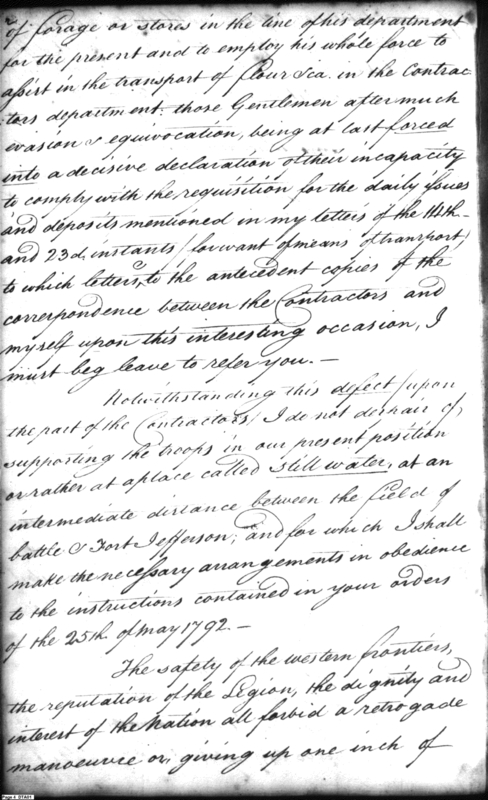 of forage or stores in the line of his department
for the present and to employ his whole force to
assist in the transport of flour &ca. in the Contrac-
tors department: those Gentlemen after much
evasion & equivocation, being at last forced
into a decisive declaration of their incapacity
to comply with the requisition for the daily issues
and deposits mentioned in my letters of the 14th
and 23d. instants (for want of means of transport)
to which letters, & to the antecedent copies of the
correspondence between the Contractors and
myself upon this interesting occasion, I
must beg leave to refer you. —
Notwithstanding this defect (upon
the part of the Contractors) I do not despair of
supporting the troops in our present position
or rather at a place called Still water, at an
intermediate distance between the field of
battle & Fort Jefferson; and for which I shall
make the necessary arrangements in obedience
to the instructions contained in your orders
of the 25th. of may 1792. —
The safety of the western frontiers,
the reputation of the Legion, the dignity and
interest of the Nation all forbid a retrogade
manoeuvre or giving up one inch of